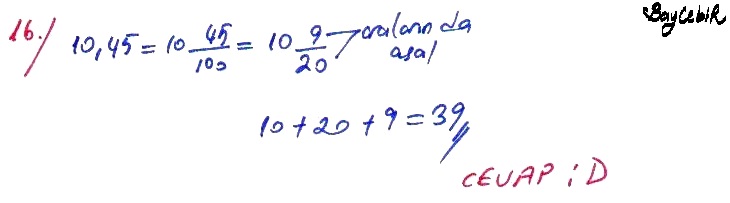 BayCebiR
16.) 10,45 = 10 45/100 = 10 9/20 → aralarında asal
10 + 20 + 9 = 39
CEVAP : D